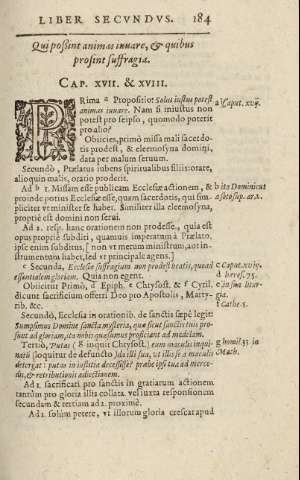 LIBER SECVNDVS. 184
Qui possint animas iuuare, & quibus
prosint suffragia.
CAP. XVII. & XVIII.
PRima a Propositio: Solus iustus potest
animas iuuare. Nam si iniustus non
potest pro seipso, quomodo poterit
pro alio?
Obiicies, primò missa mali sacerdo-
tis prodest, & eleemosyna domini,
data per malum seruum.
Secundò, Prælatus iubens spiritualibus filiis: orate,
alioquin malis, oratio proderit.
Ad b 1. Missam esse publicam Ecclesiæ actionem, &
proinde potius Ecclesiæ esse, quam sacerdotis, qui sim-
pliciter vt minister se habet. Similiter illa eleemosyna,
propriè est domini non serui.
Ad 2. resp. hanc orationem non prodesse, quia est
opus propriè subditi, quamuis imperatum à Prælato,
ipse enim subditus, [non vt merum instrumentum, aut in-
strumentum habet, sed vt principale agens.]
c Secunda, Ecclesiæ suffragium non prodest beatis, quoad
essentialem gloriam. Quia non egent.
Obiicitur Primò, d Epiph. e Chrysost. & f Cyril.
dicunt sacrificium offerri Deo pro Apostolis, Marty-
rib. &c.
Secundò, Ecclesia in orationib. de sanctis sæpè legit:
Sumpsimus Domine sancta mysteria, quæ sicut sanctis tuis pro-
sunt ad gloriam, ita nobis quæsumus proficiant ad medelam.
Tertiò, Putas (g inquit Chrysost.) eum maculis inqui-
natū (loquitur de defuncto) da illi sua, vt illis se à maculis
detergat: putas in iustitia decessisse? præbe ipsi tua ad merce-
dis, & retributionis adiectionem.
Ad 1. sacrificari pro sanctis in gratiarum actionem
tantùm pro gloria illis collata. vel iuxta responsionem
secundam & tertiam ad 2. proximè.
Ad 2. solùm petere, vt illorum gloria crescat apud
a Caput. xvij.
b ita Dominicus
a Soto sup. ar. 2.
c Caput. xviij.
d heres. 75.
e in sua litur-
gia.
f Cathe. 5.
g homil. 32. in
Math.